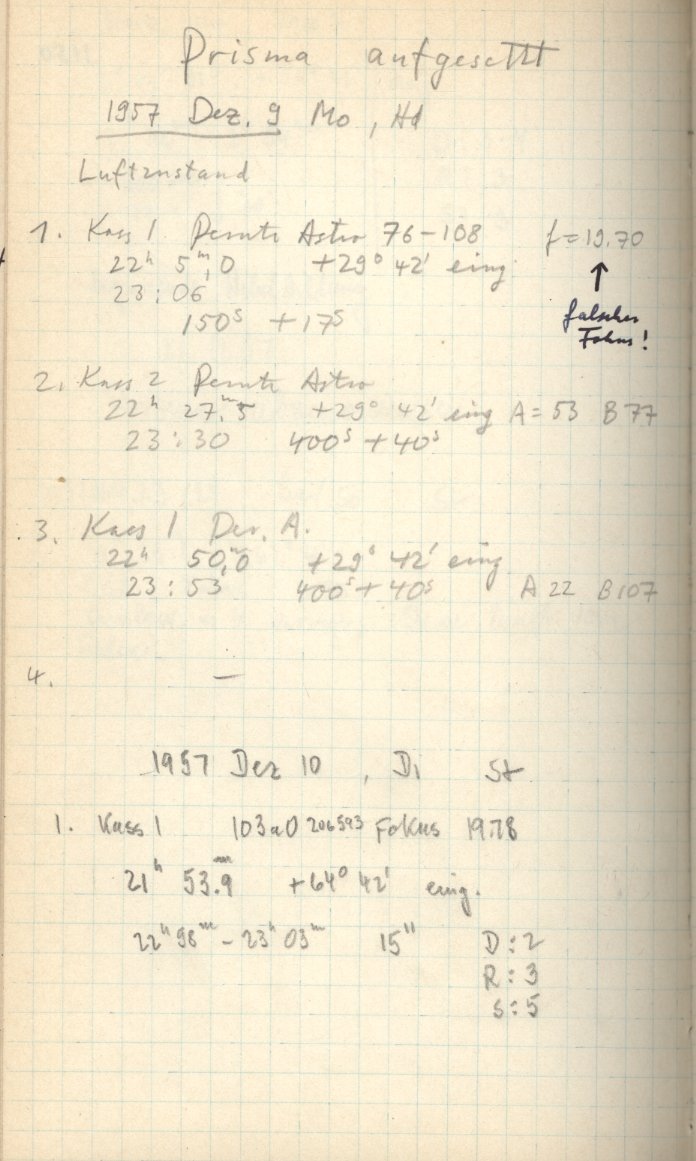 Prisma aufgesetzt
1957 Dez. 9 Mo, Hd
Luftzustand
1. Kass 1 Perutz Astro 76-108 f=19.70
22h 5m,0 +29° 42' eing
↑
23:06
falscher
150s +17s
Fokus!
2. Kass 2 Perutz Astro
22h 27m,5 +29° 42' eing A=53 B77
23:30 400s +40s
3. Kass 1 Per. A.
22h 50m,0 +29° 42' eing
23:53 400s +40s A 22 B 107
4. —
1957 Dez 10, Di St
1. Kass 1 103aO 206593 Fokus 19.78
21h 53m.9 +64° 42' eing.
22h 58m - 23h 03m 15" D:2
R:3
S:5